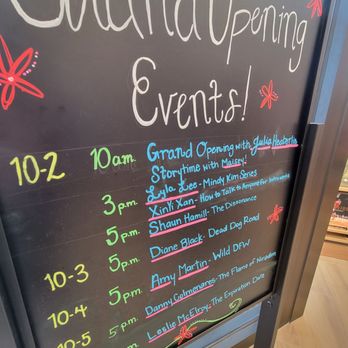 Grand Opening
Events!
10-2 10am Grand Opening with Julia
Storytime with Maisey!
Lyla Lee - Mindy Kim Series
3pm Xink Xan - How to Talk to Anyone for Introverts
5pm Shaun Hamill - The Dissonance
5pm Diane Black - Dead Dog Road
10-3 5pm Amy Martin - Wild DFW
10-4 5pm Danny Colmenares - The Flame of
10-5 5pm Leslie McElroy - The Expiration Date